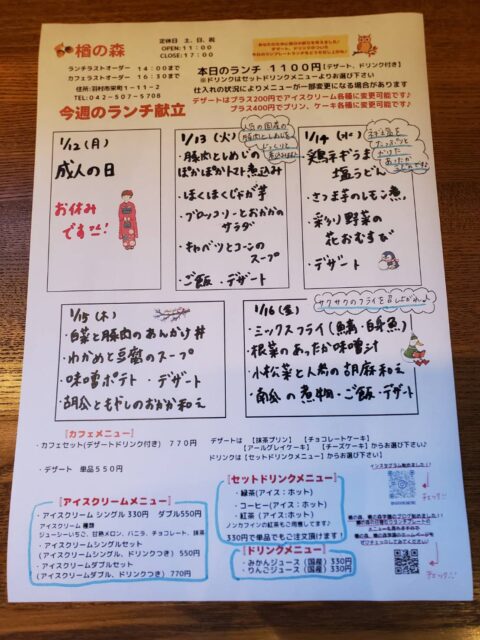 楢の森
定休日 土、日、祝
OPEN:11:00
CLOSE:17:00
ランチラストオーダー 14:00まで
カフェラストオーダー 16:30まで
住所:羽村市栄町1-11-2
TEL:042-507-5708
本日のランチ 1100円【デザート、ドリンク付き】
※ドリンクはセットドリンクメニューよりお選び下さい
仕入れの状況によりメニューが一部変更になる場合があります
デザートはプラス200円でアイスクリーム各種に変更可能です♪
プラス400円でプリン、ケーキ各種に変更可能です♪
今週のランチ献立
1/12(月)
成人の日
お休み
です
1/13(火)
・豚肉としめじの
ぽかぽかトマト煮込み
・ほくほくじゃが芋
・ブロッコリーとおかかの
サラダ
・キャベツとコーンの
スープ
・ご飯・デザート
1/14(水)
・鶏ネギうま
塩うどん
・さつま芋のレモン煮
・彩り野菜の
花おむすび
・デザート
1/15(木)
・白菜と豚肉のあんかけ丼
・わかめと豆腐のスープ
・味噌ポテト・デザート
・胡瓜ともやしのおかか和え
1/16(金)
サクサクのフライを召し上がれ♪
・ミックスフライ(鯖・白身魚)
・根菜のあったか味噌汁
・小松菜と人参の胡麻和え
・南瓜の煮物・ご飯・デザート
『カフェメニュー』
・カフェセット(デザートドリンク付き) 770円
・デザート 単品550円
デザートは 【抹茶プリン】 【チョコレートケーキ】
【アールグレイケーキ】 【チーズケーキ】からお選び下さい♪
ドリンクは【セットドリンクメニュー】からお選び下さい♪
『アイスクリームメニュー』
・アイスクリーム シングル 330円 ダブル550円
アイスクリーム 種類
ジューシーいちご、甘熟メロン、バニラ、チョコレート、抹茶
・アイスクリームシングルセット
(アイスクリームシングル、ドリンクつき) 550円
・アイスクリームダブルセット
(アイスクリームダブル、ドリンクつき) 770円
『セットドリンクメニュー』
・緑茶(アイス:ホット)
・コーヒー(アイス:ホット)
・紅茶 (アイス:ホット)
ノンカフェインの紅茶もご用意してます♪
330円で単品でもご注文頂けます!
『ドリンクメニュー』
・みかんジュース(国産) 330円
・りんごジュース(国産) 330円
インスタグラム始めました!